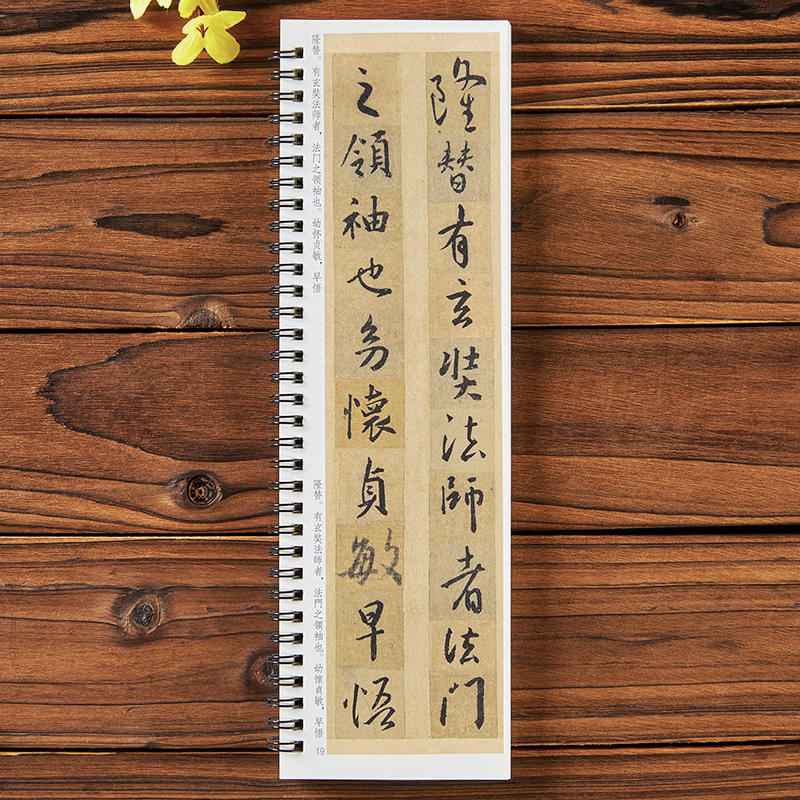 隆替有玄奘法師者法門
之領袖也幼懷貞敏早悟
隆替。有玄奘法师者，法门之领袖也。幼怀贞敏，早悟
隆替。有玄奘法師者，法門之領袖也。幼懷貞敏，早悟
19